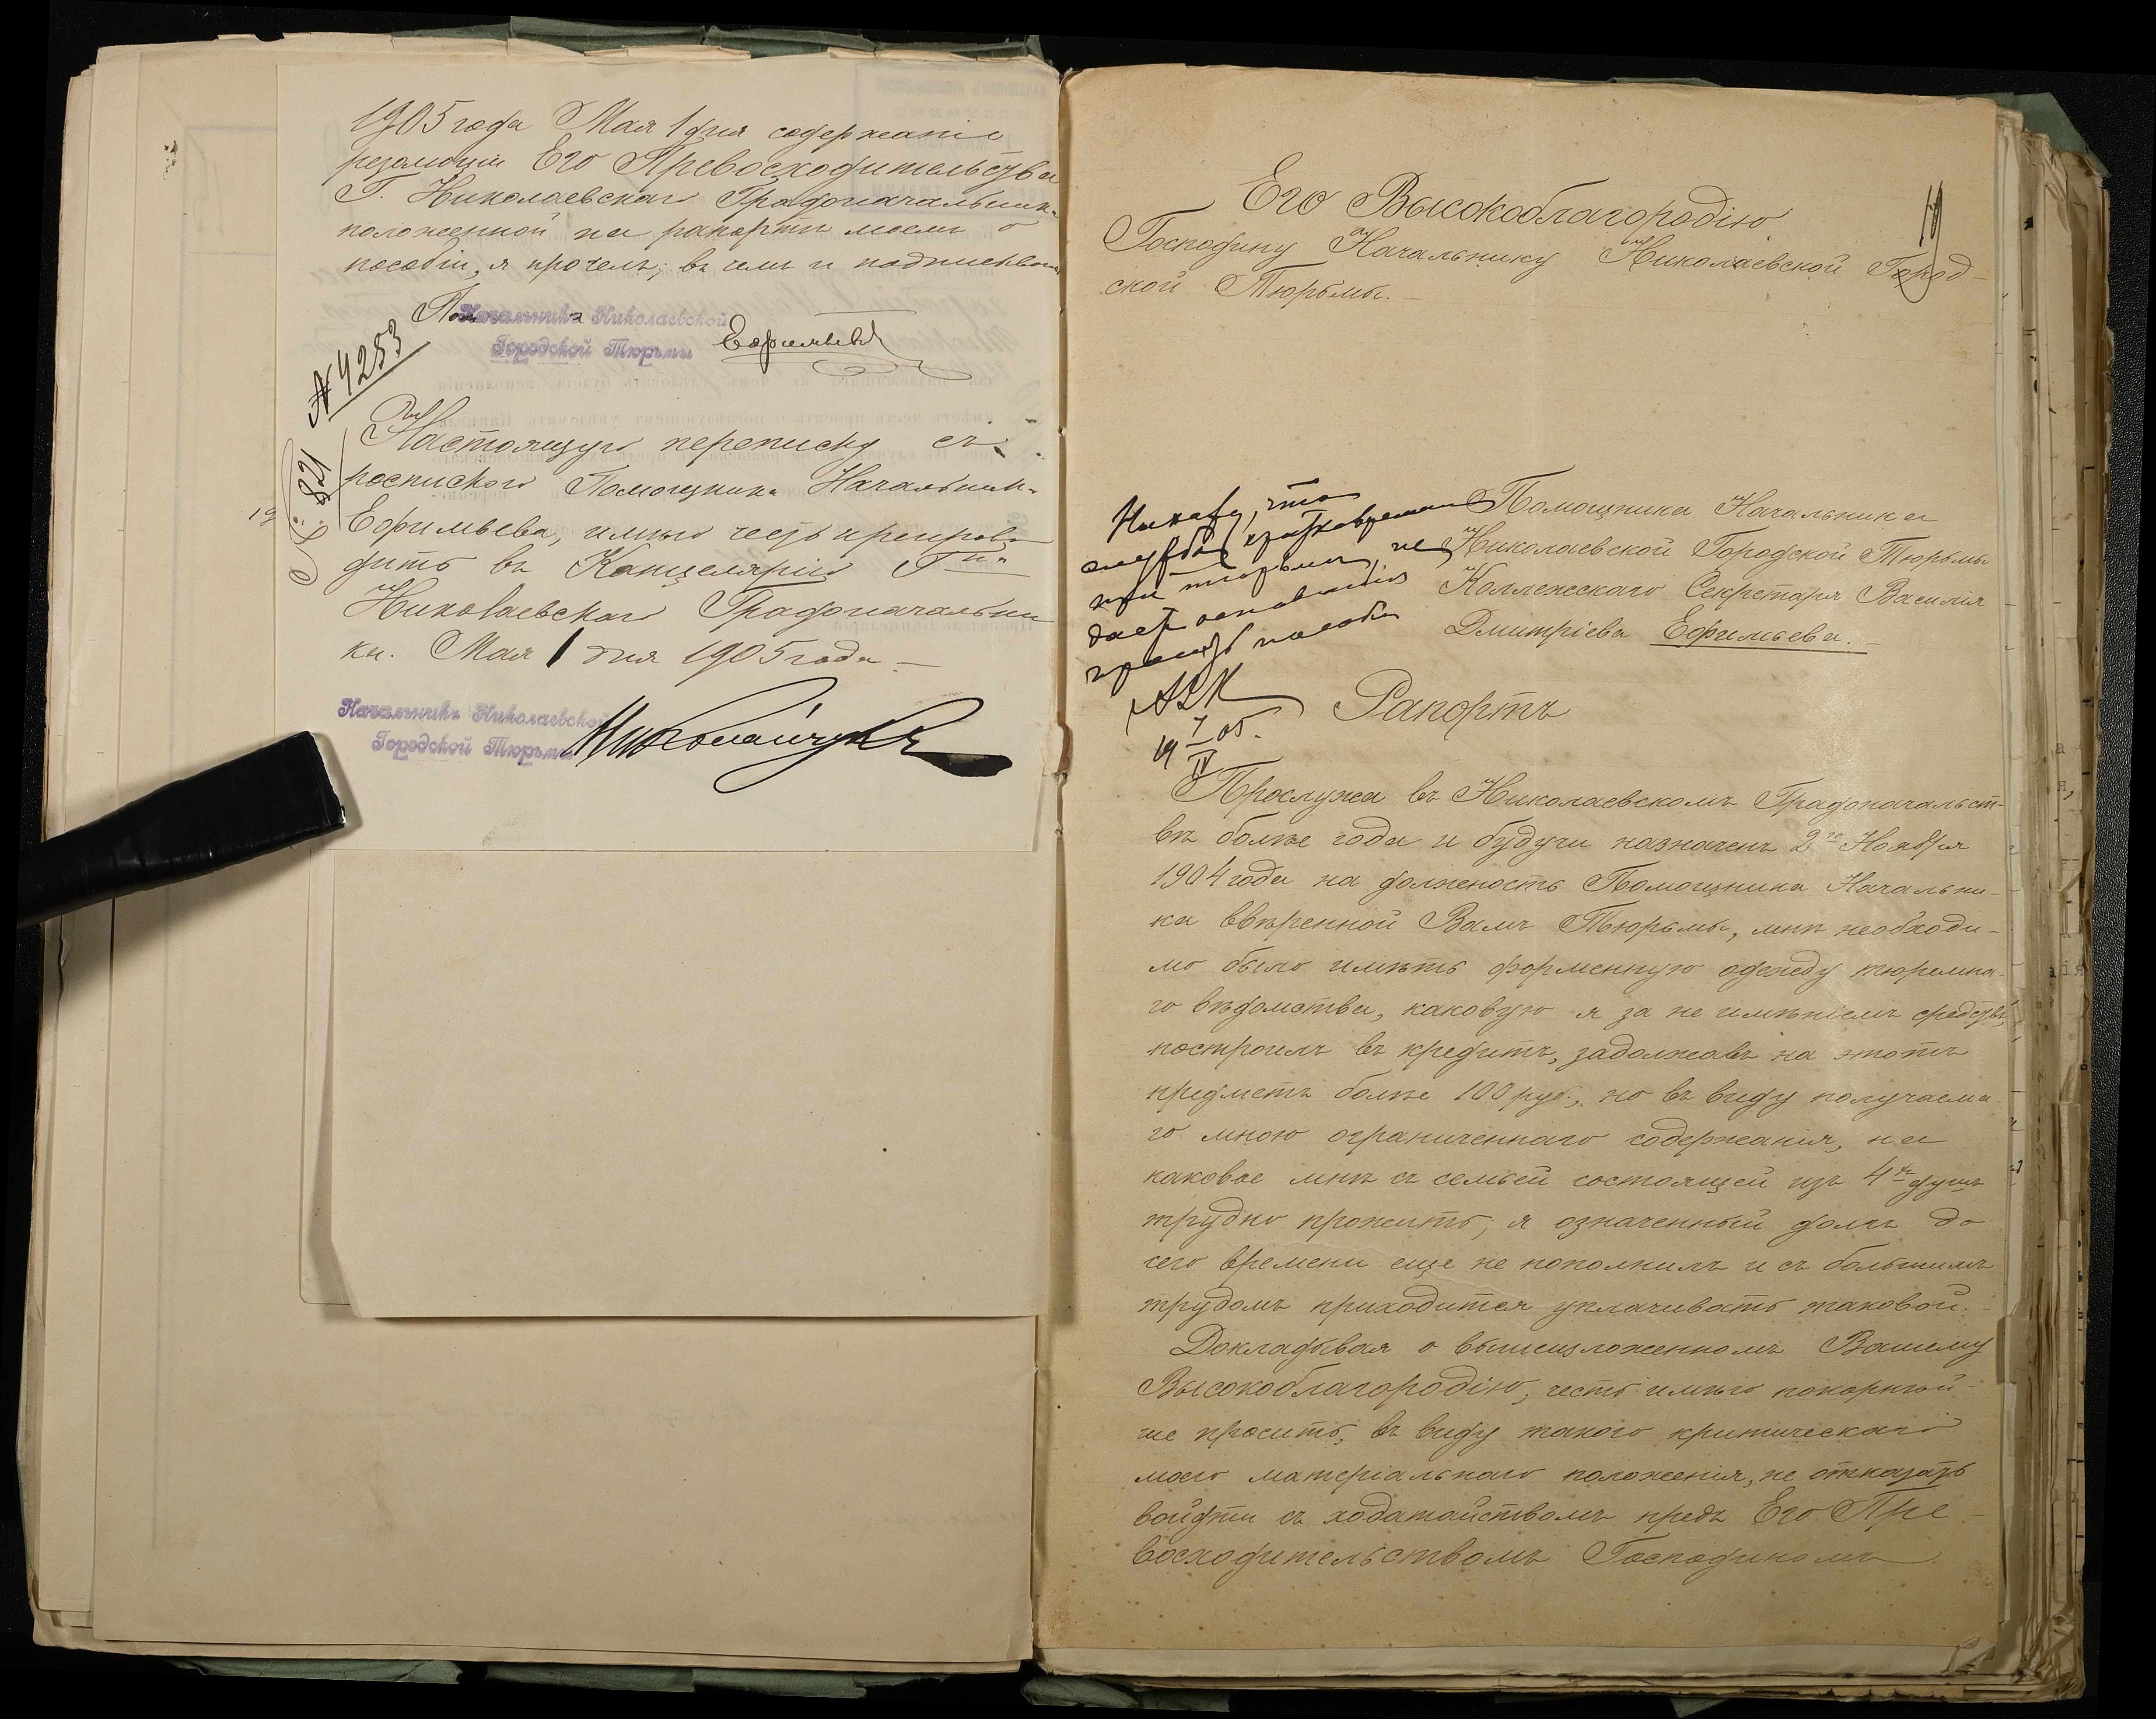 1905 года Мая 1 дня содержаніе
резолюціи Его Превосходительства
Г. Николаевскаго Градоначальника
положенной на рапортѣ моемъ о
пособіи, я прочелъ; въ чемъ и подписываюсь
Начальникъ Николаевской
Городской Тюрьмы Ефимьевъ
№ 4253
№ 821
Настоящую переписку съ
роспискою Помощника Начальника
Ефимьева, имѣю честь препрово
дить въ Канцелярію Г-на
Николаевскаго Градоначальни
ка. Мая 1 дня 1905 года —
Начальникъ Николаевской
Городской Тюрьмы
19
Его Высокоблагородію
Господину Начальнику Николаевской Город-
ской Тюрьмы. —
Нахожу, что
служба кратковременная
при тюрьмѣ, не
даетъ основанія
пособія
7/IV 1905.
Помощника Начальника
Николаевской Городской Тюрьмы
Коллежскаго Секретаря Василія
Дмитріева Ефимьева. —
Рапортъ
Прослужа въ Николаевскомъ Градоначальст-
вѣ болѣе года и будучи назначенъ 2го Ноября
1904 года на должность Помощника Начальни-
ка ввѣренной Вамъ Тюрьмы, мнѣ необходи-
мо было имѣть форменную одежду тюремна-
го вѣдомства, каковую я за не имѣніемъ средствъ,
построилъ въ кредитъ, задолжавъ на этотъ
предметъ болѣе 100 руб., но въ виду получаема-
го мною ограниченнаго содержанія, на
каковое мнѣ съ семьей состоящей изъ 4хъ душъ
трудно прожить, я означенный долгъ до
сего времени еще не пополнилъ и съ большимъ
трудомъ приходится уплачивать таковой. —
Докладывая о вышеизложенномъ Вашему
Высокоблагородію, честь имѣю покорнѣй-
ше просить, въ виду такого критическаго
моего матеріальнаго положенія, не отказать
войдти съ ходатайствомъ предъ Его Пре-
восходительствомъ Господиномъ